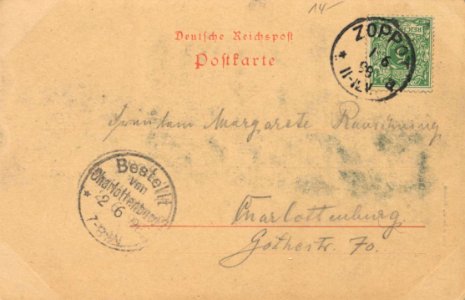 14-
Deutsche Reichspost
Postkarte
ZOPPOT
1/6
98
11-12V.
Fräulein Margarete
Bestellt
von
Charlottenburg
2/6
Charlottenburg
Goethestr. 70.